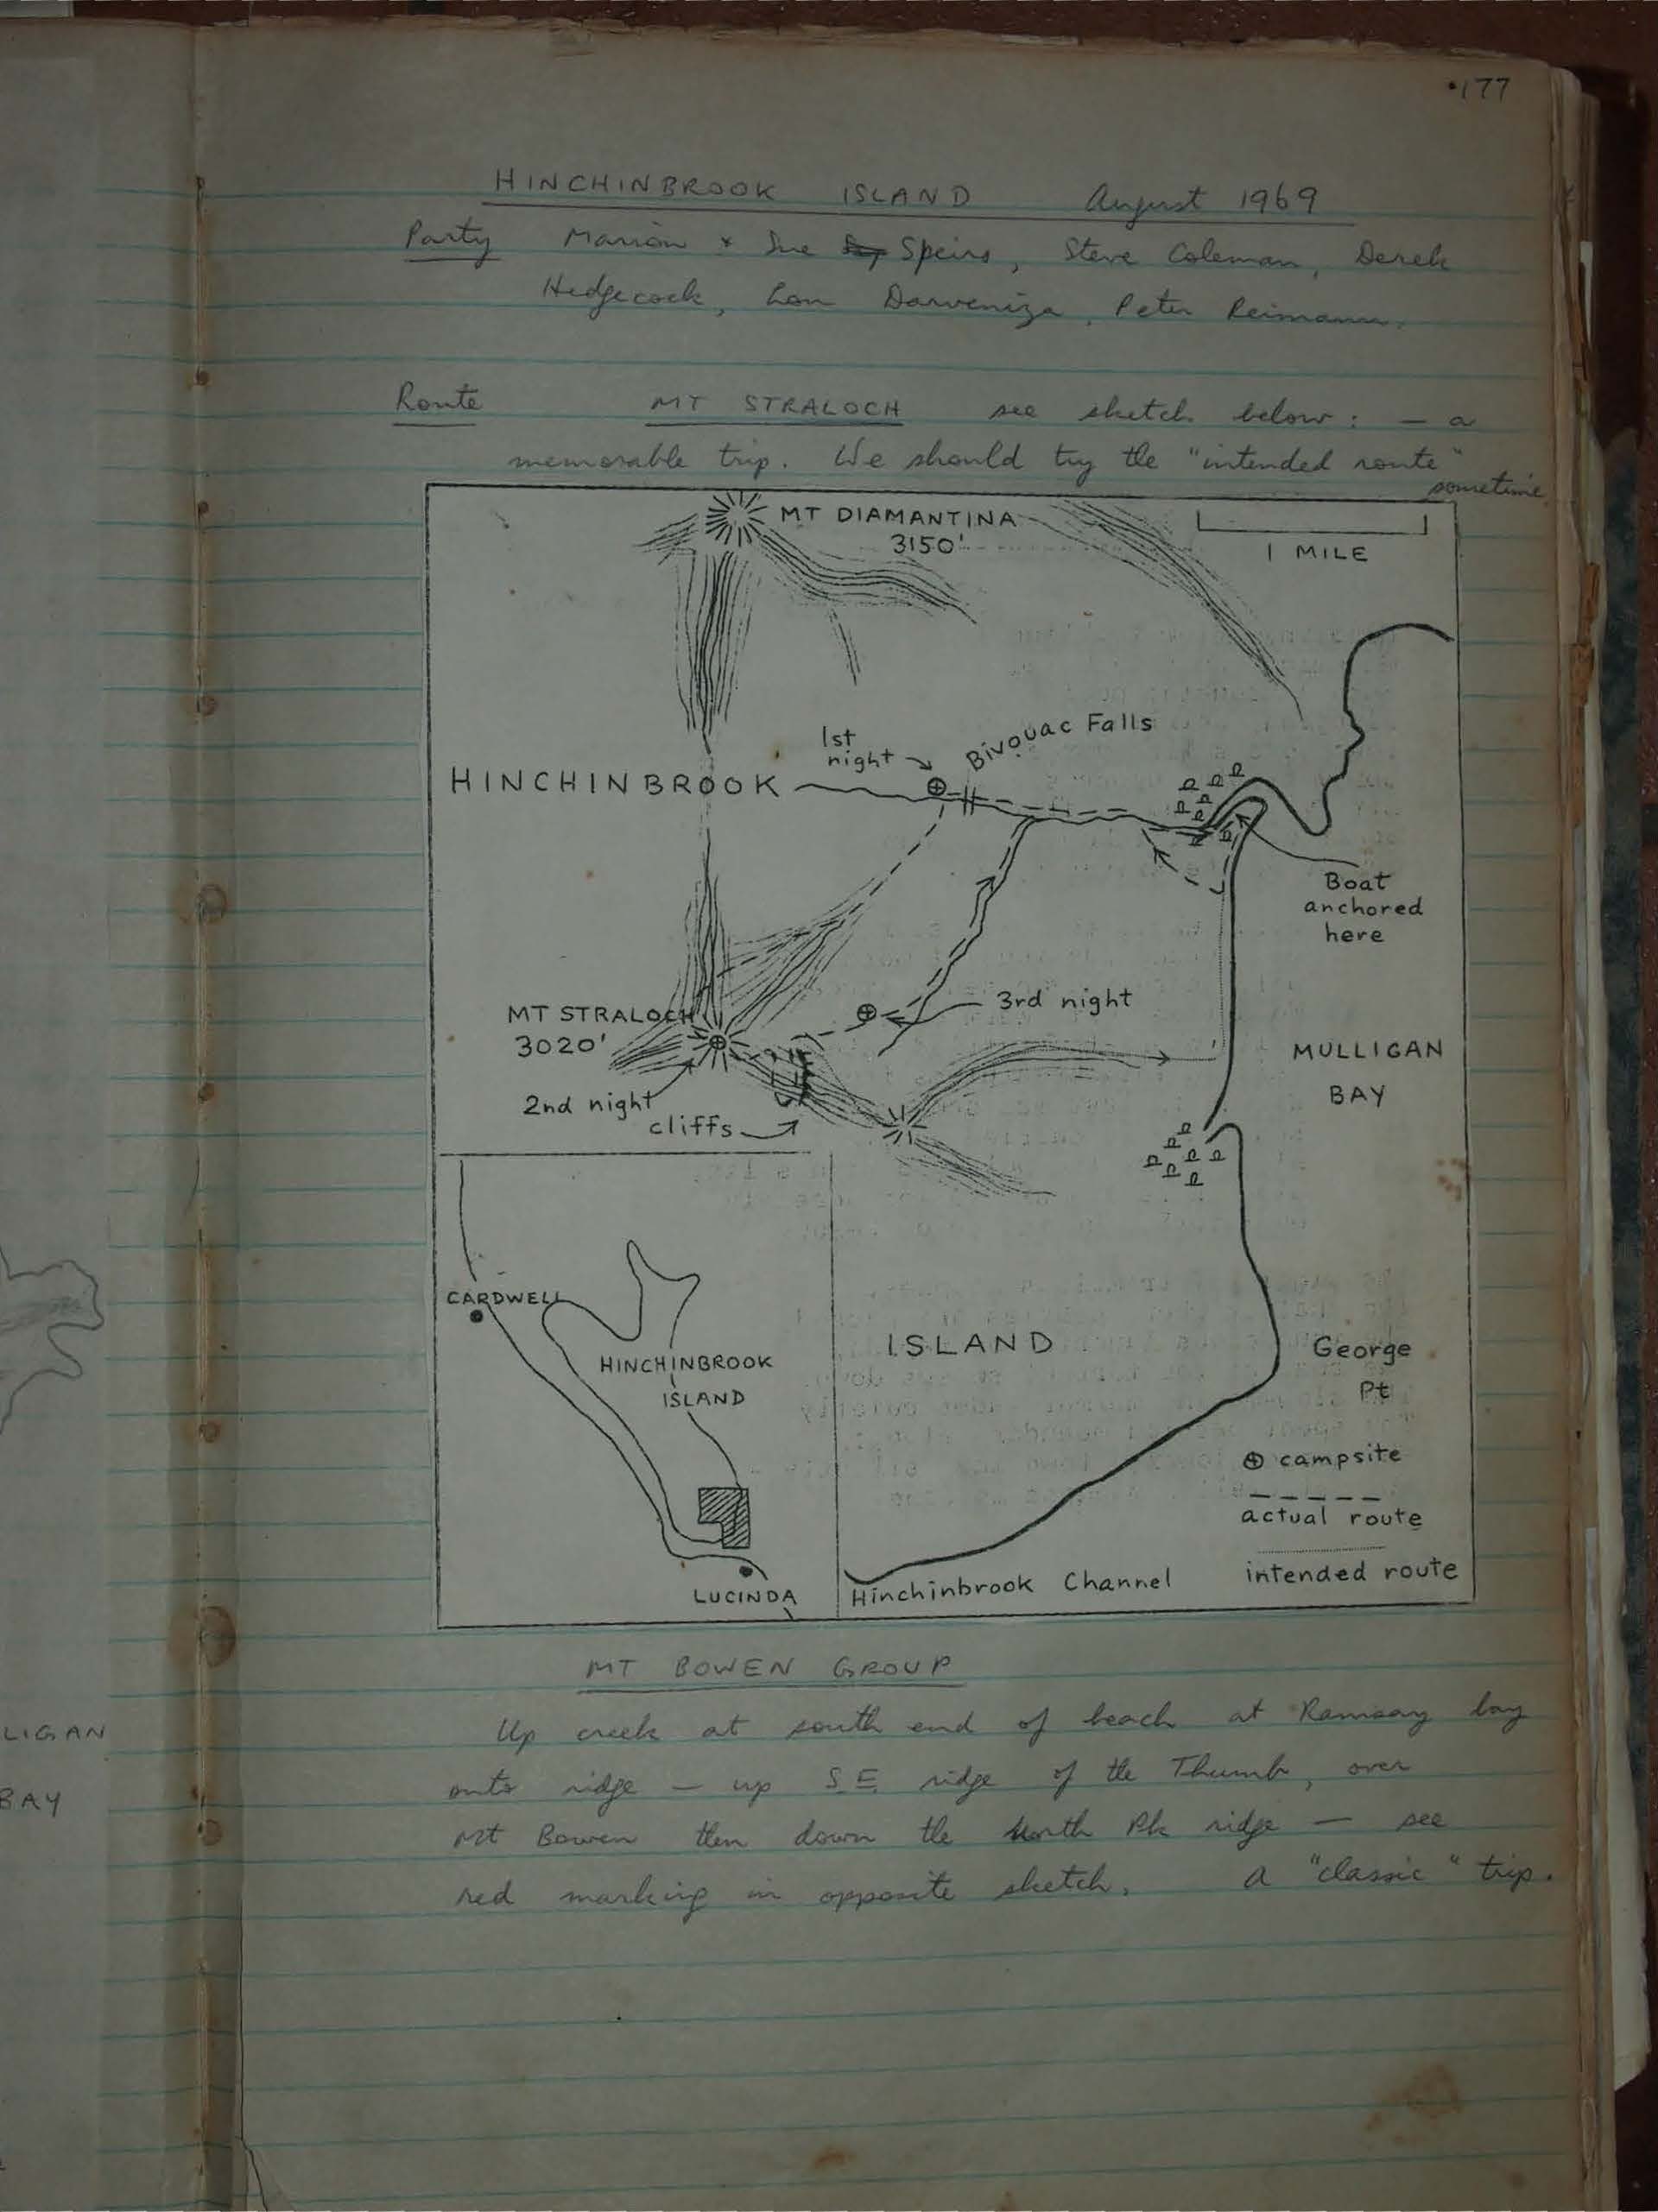 177
HINCHINBROOK ISLAND August 1969
Party Marion + Sue Speirs, Steve Coleman, Derek
Hedgecock, Lou Darveniza, Peter Reimann.
Route MT STRALOCH see sketch below: — a
memorable trip. We should try the "intended route"
sometime
MT DIAMANTINA
3150'
1 MILE
1st
night
Bivouac Falls
HINCHINBROOK
Boat
anchored
here
MT STRALOCH
3020'
3rd night
2nd night
cliffs
MULLIGAN
BAY
CARDWELL
HINCHINBROOK
ISLAND
LUCINDA
ISLAND
George
Pt
campsite
actual route
intended route
Hinchinbrook Channel
MT BOWEN GROUP
Up creek at south end of beach at Ramsay bay
onto ridge — up SE ridge of the Thumb, over
Mt Bowen then down the North Pk ridge — see
red marking in opposite sketch. A "classic" trip.
LIGAN
BAY